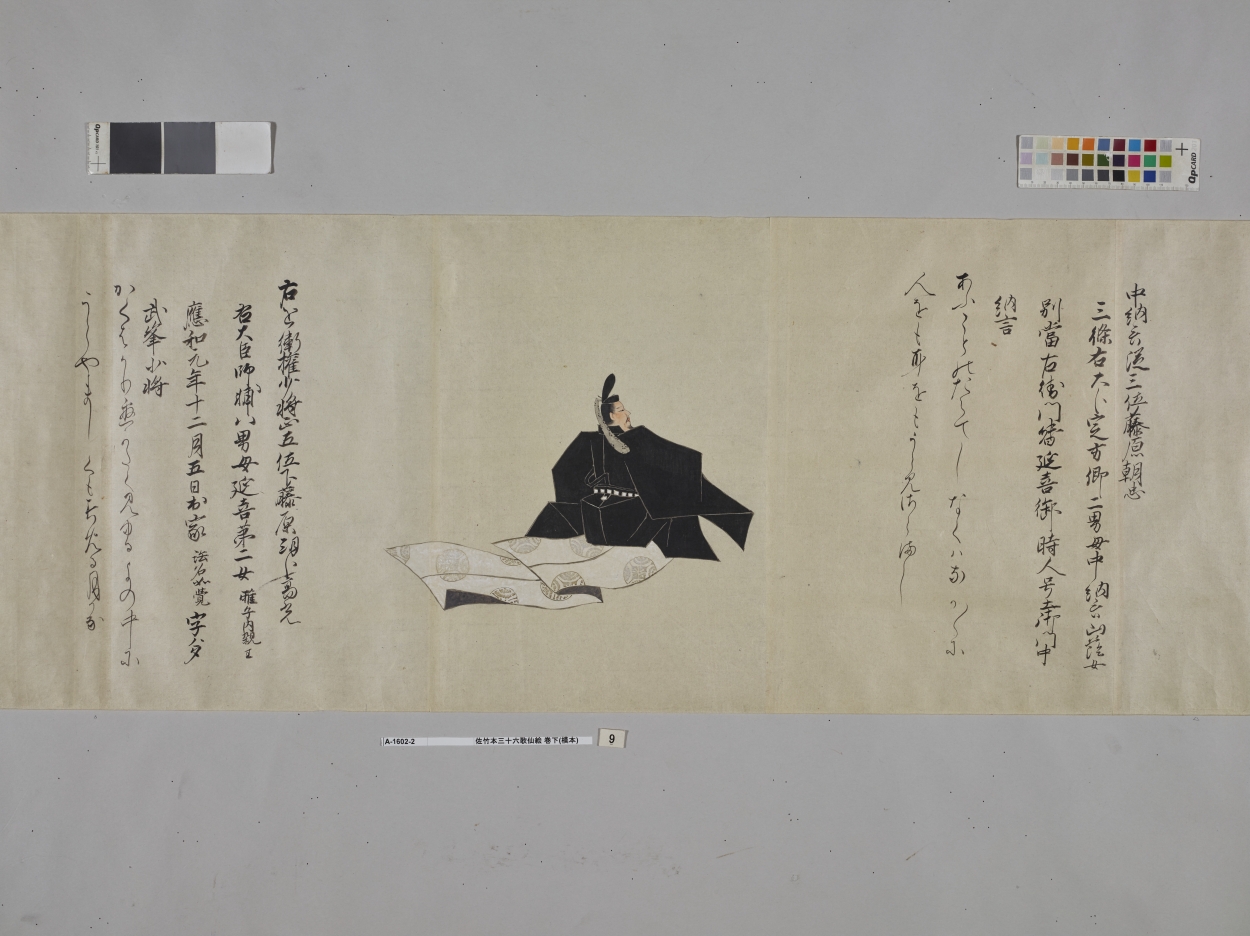 中納言従三位藤原朝忠
三條右大臣定方卿二男母中納言山蔭女
別當右衛門督延喜御時人号土御門中
納言
あふことのたえてしなくハなか〱に
人をも身をもうらみさらまし
右近衛権少将正五位下藤原朝臣高光
右大臣師輔八男母延喜第二女 雅子内親王
應和元年十二月五日出家 法名如覚 字
武峯少将
かくはかりへかたくみゆるよの中に
うらやましくもすめる月かな
A-1602-2 佐竹本三十六歌仙絵 巻下(模本)
9
QPCARD